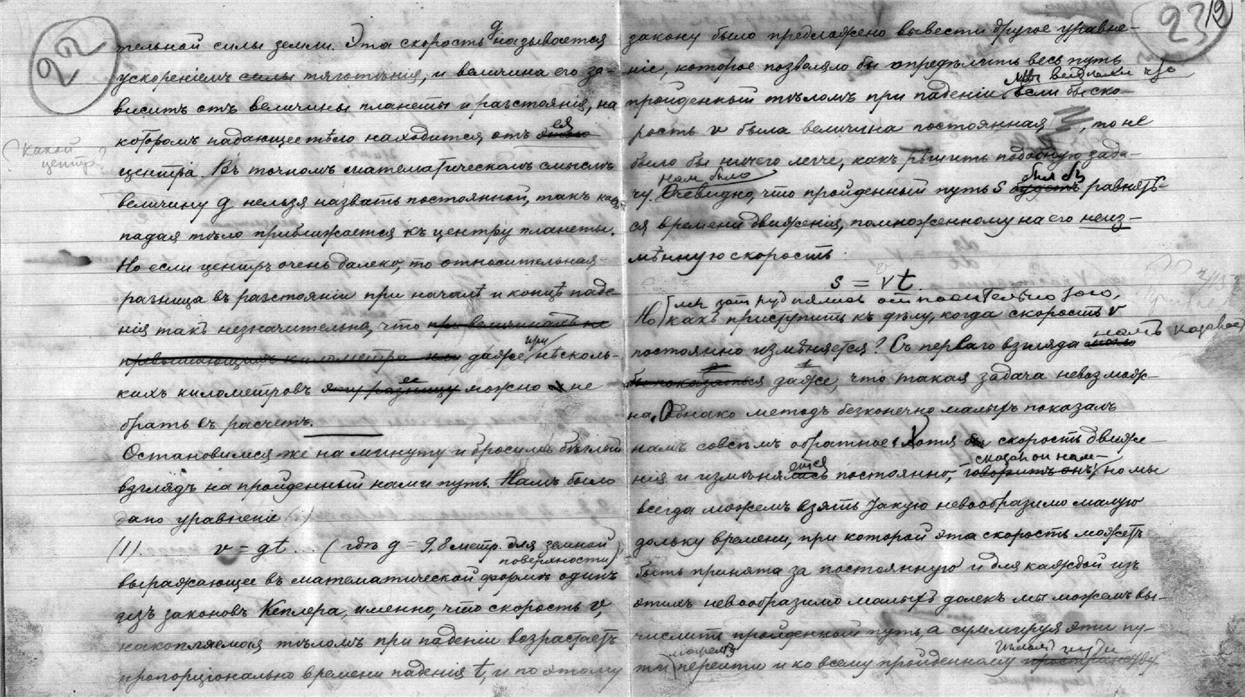 22
тельной силы земли. Эта скорость g называется
ускореніемъ силы тяготѣнія, и величина его за-
виситъ отъ величины планеты и разстоянія, на
которомъ падающее тѣло находится, отъ ея
какой центръ
центра. Въ точномъ математическомъ смыслѣ
величину g нельзя назвать постоянной, такъ какъ
падая тѣло приближается къ центру планеты.
Но если центръ очень далеко, то относительная
разница въ разстояніи при началѣ и концѣ паде-
нія такъ незначительна, что при величинахъ не
превышающихъ километра или даже при нѣсколь-
кихъ километровъ эту разницу ее можно и не
брать въ расчетъ.
Остановимся же на минуту и бросимъ бѣглый
взглядъ на пройденный нами путь. Намъ было
дано уравненіе
(1) v = gt... (гдѣ g = 9,8 метр. для земной
поверхности)
выражающее въ математической формѣ одинъ
изъ законовъ Кеплера, именно, что скорость v,
накопляемая тѣломъ при паденіи возрастаетъ
пропорціонально времени паденія t, и по этому
23
19
закону было предложено вывести другое уравне-
ніе, которое позволяло бы опредѣлить весь путь
мы видѣли что
пройденный тѣломъ при паденіи. если бы ско-
рость v была величина постоянная, то не
было бы ничего легче, какъ рѣшить подобную зада-
намъ было
был бы
чу. Очевидно, что пройденный путь s будетъ равнять-
ся времени движенія, помноженному на его неиз-
мѣнную скорость
s = vt.
мы затруднялись относительно того,
Но какъ приступить къ дѣлу, когда скорость v
постоянно измѣняется? Съ перваго взгляда могло
намъ казалось
бы показаться даже, что такая задача невозмож-
на. Однако методъ безконечно малыхъ показалъ
намъ совсѣмъ обратное. Хотя бы скорость движе-
сказалъ онъ намъ
нія и измѣнялась постоянно, говоритъ онъ, но мы
всегда можемъ взять такую невообразимо малую
дольку времени, при которой эта скорость можетъ
быть принята за постоянную и для каждой изъ
этихъ невообразимо малыхъ долекъ мы можемъ вы-
числить пройденный путь, а суммируя эти пу-
можемъ
ти перейти и ко всему пройденному пространству